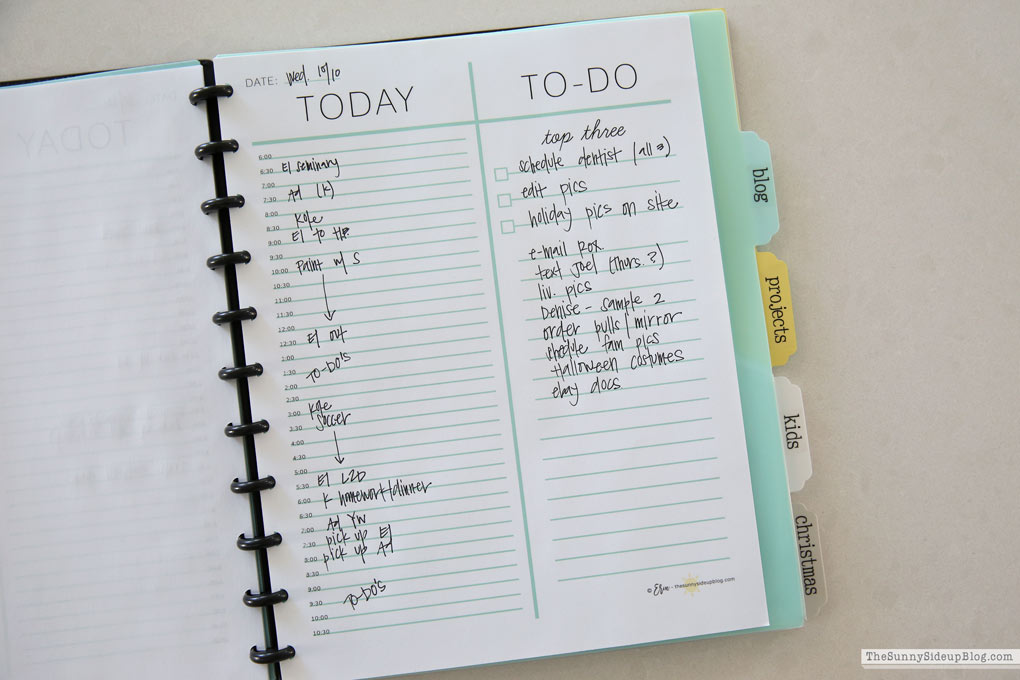 DATE: Wed. 10/10
TODAY
6:00
6:30 El seminary
7:00
7:30 Ad (K)
8:00
8:30 Kole
9:00 El to
9:30
10:00 Paint w/ S
10:30
11:00
11:30
12:00
12:30 El out
1:00
1:30 TO-DO's
2:00
2:30
3:00 Kole
3:30 soccer
4:00
4:30
5:00
5:30 El
6:00 K homework/dinner
6:30
7:00 Ad YW
7:30 pick up El
8:00 pick up Ad
8:30
9:00
9:30 TO-DO's
10:00
10:30
TO-DO
top three
schedule dentist (all 3)
edit pics
holiday pics on site
e-mail Rox.
text Joel (Thurs.?)
liv. pics
Denise - sample 2
order pulls/mirror
shedule fam pics
Halloween costumes
ebay docs
© - thesunnysideupblog.com
blog
projects
kids
christmas
TODAY
TheSunnySideupBlog.com